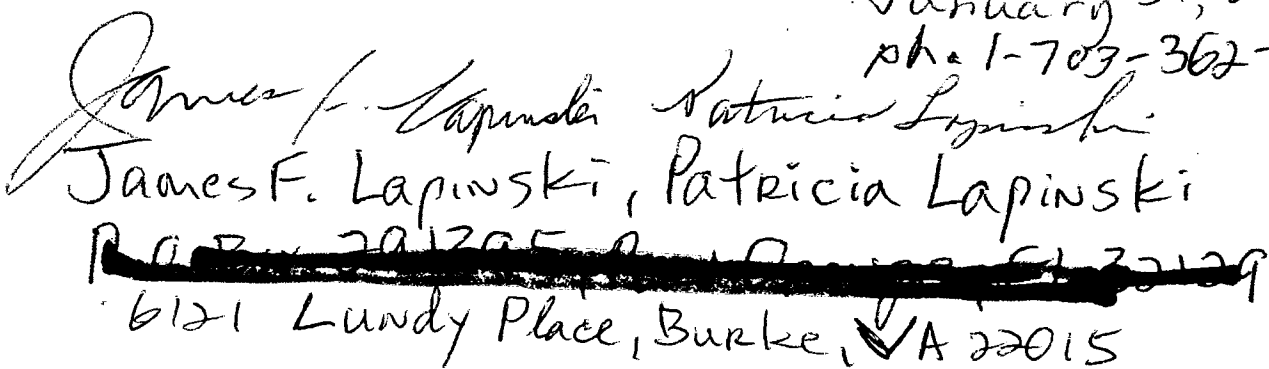 January
ph. 1-703-362-
James F. Lapinski Patricia Lapinski
James F. Lapinski, Patricia Lapinski
6121 Lundy Place, Burke, VA 22015